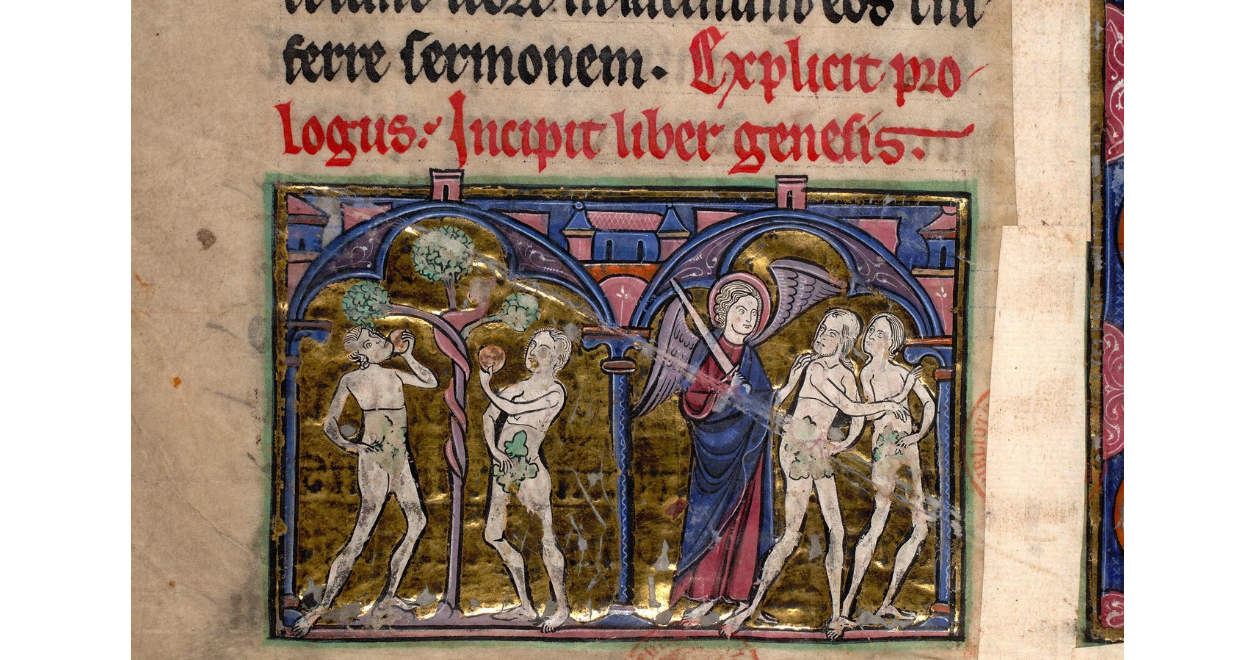 latinum eos
ferre sermonem. Explicit pro
logus. Incipit liber genesis.